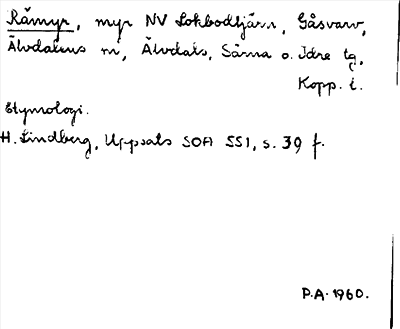 Råmyr, myr NV Lokbodtjärn, Gåsvarv,
Älvdalens sn, Älvdals, Särna o. Idre tg,
Kopp. l.
Etymologi.
H. Lindberg, Uppsats SOA 551, s. 39 f.
P.A. 1960.